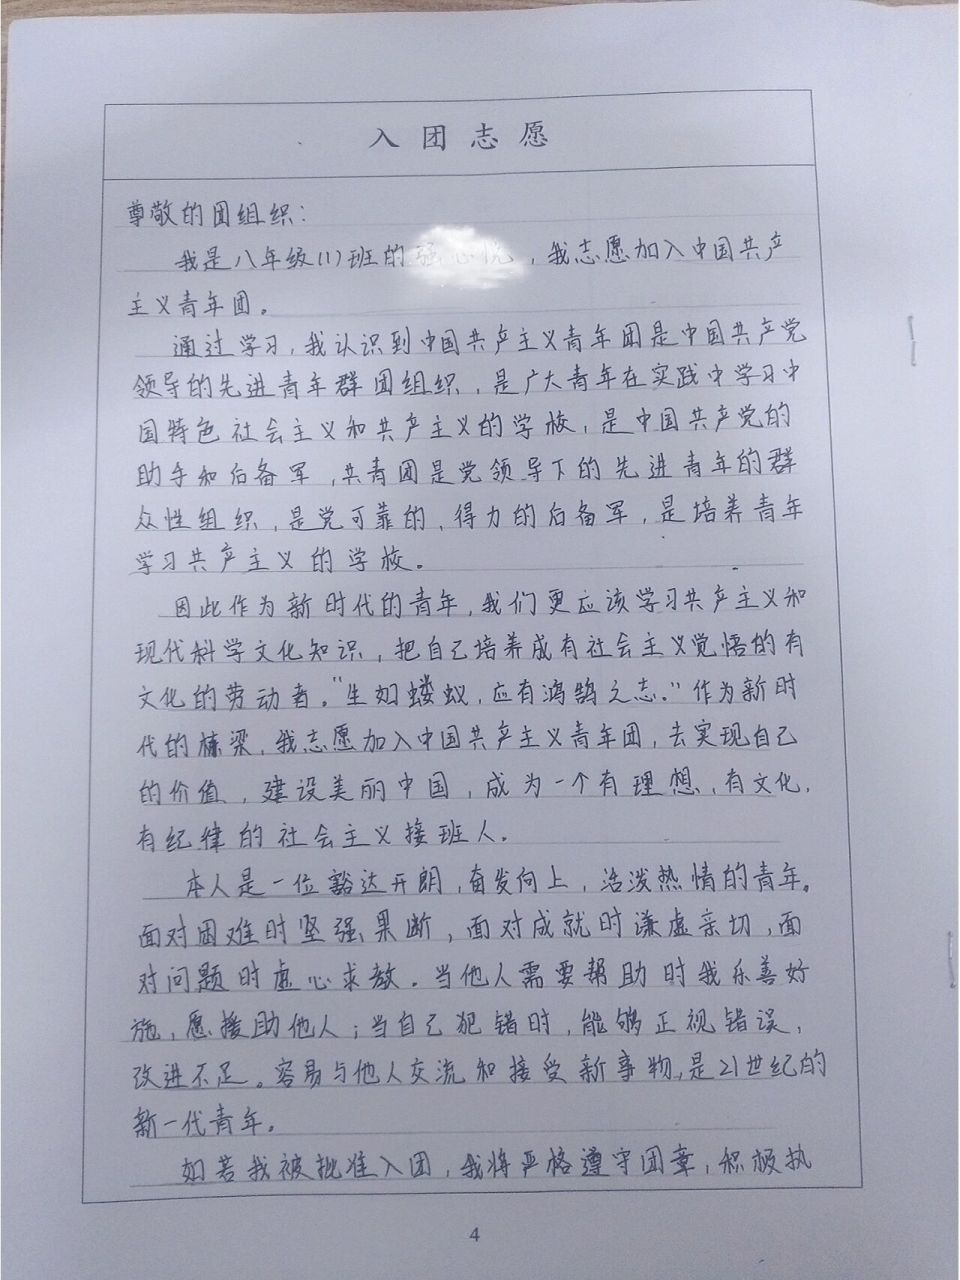 入团志愿
尊敬的团组织：
我是八年级(1)班的，我志愿加入中国共产
主义青年团。
通过学习，我认识到中国共产主义青年团是中国共产党
领导的先进青年群团组织，是广大青年在实践中学习中
国特色社会主义和共产主义的学校，是中国共产党的
助手和后备军，共青团是党领导下的先进青年的群
众性组织，是党可靠的、得力的后备军，是培养青年
学习共产主义的学校。
因此作为新时代的青年，我们更应该学习共产主义和
现代科学文化知识，把自己培养成有社会主义觉悟的有
文化的劳动者。“生如蝼蚁，应有鸿鹄之志。”作为新时
代的栋梁，我志愿加入中国共产主义青年团，去实现自己
的价值，建设美丽中国，成为一个有理想、有文化、
有纪律的社会主义接班人。
本人是一位豁达开朗，奋发向上，活泼热情的青年。
面对困难时坚强果断，面对成就时谦虚亲切，面
对问题时虚心求教。当他人需要帮助时我乐善好
施，愿援助他人；当自己犯错时，能够正视错误，
改进不足。容易与他人交流和接受新事物，是21世纪的
新一代青年。
如若我被批准入团，我将严格遵守团章，积极执
4